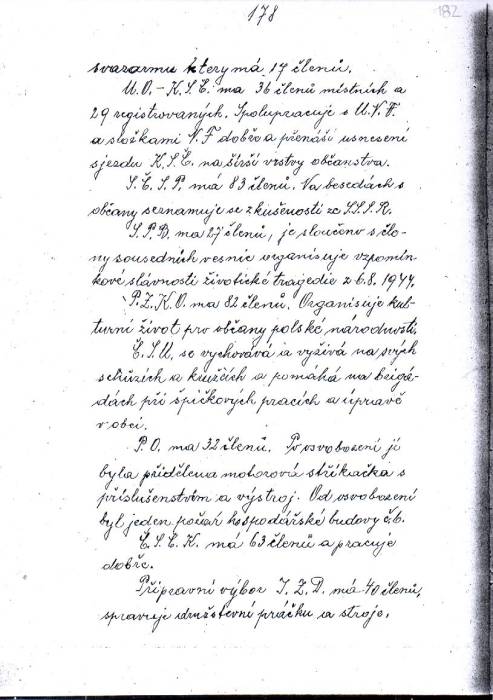 178
182
svazarmu který má 17 členů.
U.O. - K.S.Č. má 36 členů místních a
29 registrovaných. Spolupracuje s U.V.F.
a složkami N.F dobře a přenáší usnesení
sjezdu K.S.Č. na širší vrstvy občanstva.
S.Č.S.P. má 83 členů. Na besedách s
občany seznamuje se zkušeností ze S.S.S.R.
S.P.B. má 27 členů, je sloučeno s čle-
ny sousedních vesnic organisuje vzpomín-
kové slávnosti životické tragedie z 6.8.1944.
P.Z.K.O. má 82 členů. Organisuje kul-
turní život pro občany polské národnosti.
Č.S.M. se vychovává a vyžívá na svých
schůzích a kružcích a pomáhá na brigá-
dách při špičkových pracích a úpravě
v obci.
P.O. má 32 členů. Po osvobození jí
byla přidělena motorová stříkačka s
příslušenstvím a výstroj. Od osvobození
byl jeden požár hospodářské budovy č.6.
Č.S.Č.K. má 63 členů a pracuje
dobře.
Přípravní výbor J.Z.D. má 40 členů,
spravuje družstevní pračku a stroje.